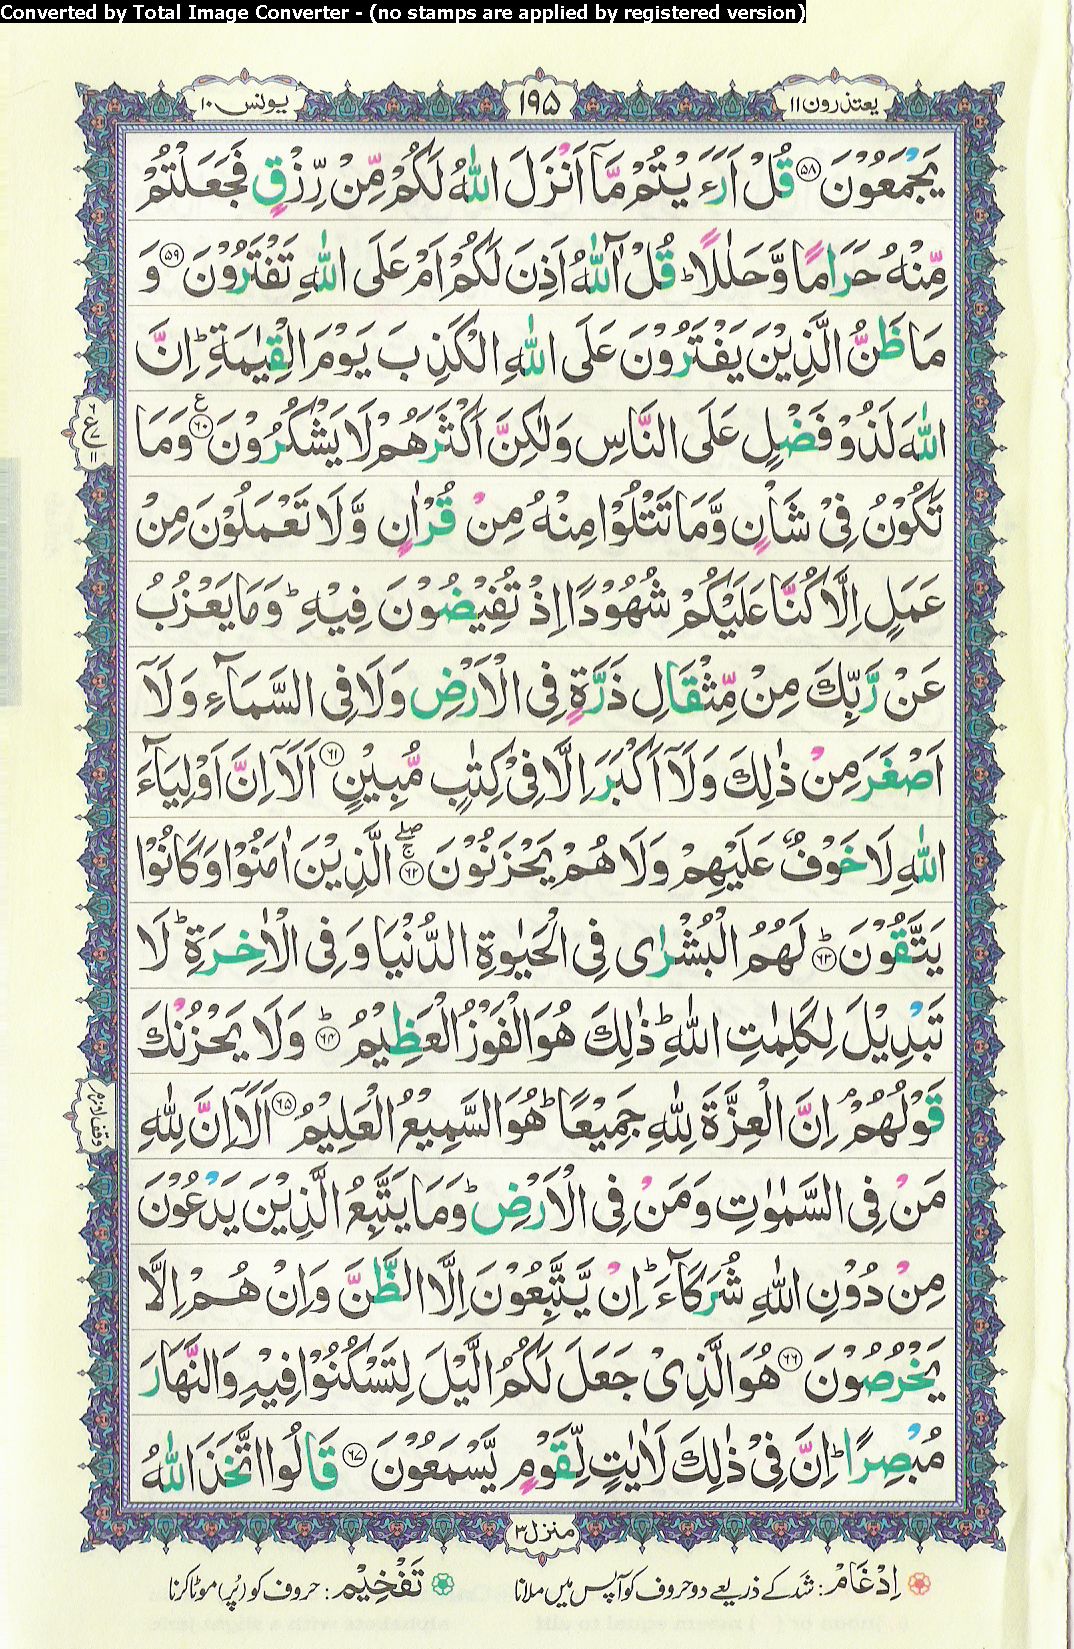 Converted by Total Image Converter - (no stamps are applied by registered version)
یعتذرون ۱۱
۱۹۵
یونس ۱۰
يَجْمَعُوْنَ ﴿۵۸﴾ قُلْ اَرَءَيْتُمْ مَّاۤ اَنْزَلَ اللّٰهُ لَكُمْ مِّنْ رِّزْقٍ فَجَعَلْتُمْ
مِّنْهُ حَرَامًا وَّحَلٰلًا ؕ قُلْ آٰللّٰهُ اَذِنَ لَكُمْ اَمْ عَلَى اللّٰهِ تَفْتَرُوْنَ ﴿۵۹﴾ وَ
مَا ظَنُّ الَّذِيْنَ يَفْتَرُوْنَ عَلَى اللّٰهِ الْكَذِبَ يَوْمَ الْقِيٰمَةِ ؕ اِنَّ
اللّٰهَ لَذُوْ فَضْلٍ عَلَى النَّاسِ وَلٰكِنَّ اَكْثَرَهُمْ لَا يَشْكُرُوْنَ ﴿۶۰﴾ وَمَا
تَكُوْنُ فِيْ شَاْنٍ وَّمَا تَتْلُوْا مِنْهُ مِنْ قُرْاٰنٍ وَّلَا تَعْمَلُوْنَ مِنْ
عَمَلٍ اِلَّا كُنَّا عَلَيْكُمْ شُهُوْدًا اِذْ تُفِيْضُوْنَ فِيْهِ ؕ وَمَا يَعْزُبُ
عَنْ رَّبِّكَ مِنْ مِّثْقَالِ ذَرَّةٍ فِي الْاَرْضِ وَلَا فِي السَّمَآءِ وَلَاۤ
اَصْغَرَ مِنْ ذٰلِكَ وَلَاۤ اَكْبَرَ اِلَّا فِيْ كِتٰبٍ مُّبِيْنٍ ﴿۶۱﴾ اَلَاۤ اِنَّ اَوْلِيَآءَ
اللّٰهِ لَا خَوْفٌ عَلَيْهِمْ وَلَا هُمْ يَحْزَنُوْنَ ﴿۶۲﴾ الَّذِيْنَ اٰمَنُوْا وَكَانُوْا
يَتَّقُوْنَ ﴿۶۳﴾ لَهُمُ الْبُشْرٰى فِي الْحَيٰوةِ الدُّنْيَا وَفِي الْاٰخِرَةِ ؕ لَا
تَبْدِيْلَ لِكَلِمٰتِ اللّٰهِ ؕ ذٰلِكَ هُوَ الْفَوْزُ الْعَظِيْمُ ﴿۶۴﴾ وَلَا يَحْزُنْكَ
قَوْلُهُمْ ۘ اِنَّ الْعِزَّةَ لِلّٰهِ جَمِيْعًا ؕ هُوَ السَّمِيْعُ الْعَلِيْمُ ﴿۶۵﴾ اَلَاۤ اِنَّ لِلّٰهِ
مَنْ فِي السَّمٰوٰتِ وَمَنْ فِي الْاَرْضِ ؕ وَمَا يَتَّبِعُ الَّذِيْنَ يَدْعُوْنَ
مِنْ دُوْنِ اللّٰهِ شُرَكَآءَ ؕ اِنْ يَّتَّبِعُوْنَ اِلَّا الظَّنَّ وَاِنْ هُمْ اِلَّا
يَخْرُصُوْنَ ﴿۶۶﴾ هُوَ الَّذِيْ جَعَلَ لَكُمُ الَّيْلَ لِتَسْكُنُوْا فِيْهِ وَالنَّهَارَ
مُبْصِرًا ؕ اِنَّ فِيْ ذٰلِكَ لَاٰيٰتٍ لِّقَوْمٍ يَّسْمَعُوْنَ ﴿۶۷﴾ قَالُوا اتَّخَذَ اللّٰهُ
منزل ۳
اِدْغَام: شد کے ذریعے دو حروف کو آپس میں ملانا
تَفْخِيْم: حروف کو (پُر) موٹا کرنا